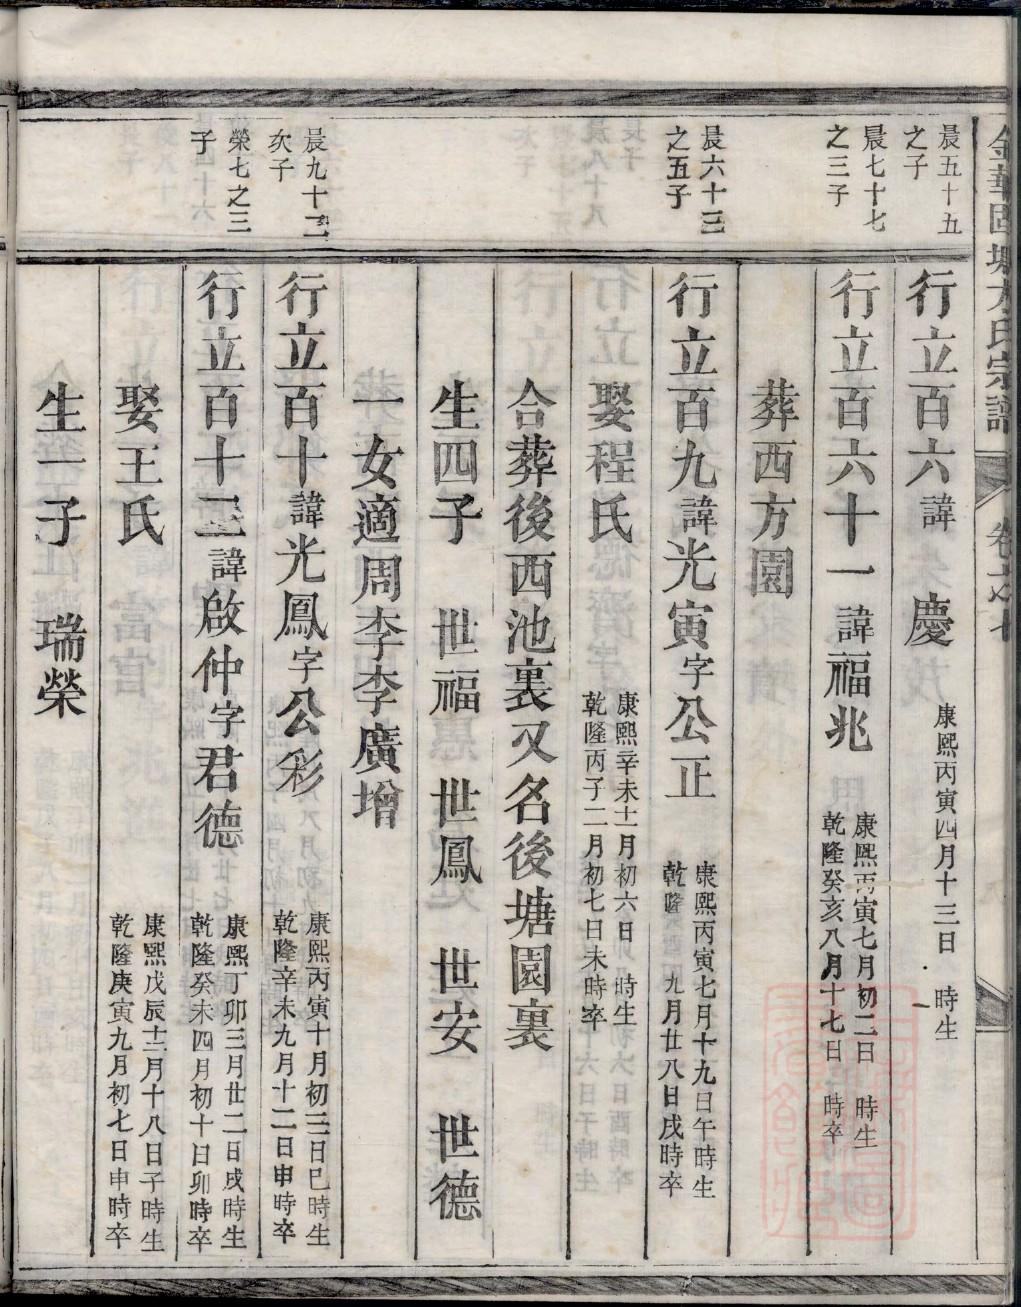 晨五十五
之子
行立百六諱 慶
康熙丙寅四月十三日 時生
晨七十七
之三子
行立百六十一諱福兆
康熙丙寅七月初二日 時生
乾隆癸亥八月十七日 時卒
葬西方園
晨六十三
之五子
行立百九諱光寅字公正
康熙丙寅七月十九日午時生
乾隆 九月廿八日戌時卒
娶程氏
康熙辛未十一月初六日 時生
乾隆丙子二月初七日未時卒
合葬後西池裏又名後塘園裏
生四子 世福 世鳳 世安 世德
一女適周李李廣增
晨九十二
次子
行立百十諱光鳳字公彩
康熙丙寅十月初三日巳時生
乾隆辛未九月十二日申時卒
榮七之三
子
行立百十三諱啟仲字君德
康熙丁卯三月廿二日戌時生
乾隆癸未四月初十日卯時卒
娶王氏
康熙戊辰十二月十八日子時生
乾隆庚寅九月初七日申時卒
生一子 瑞榮